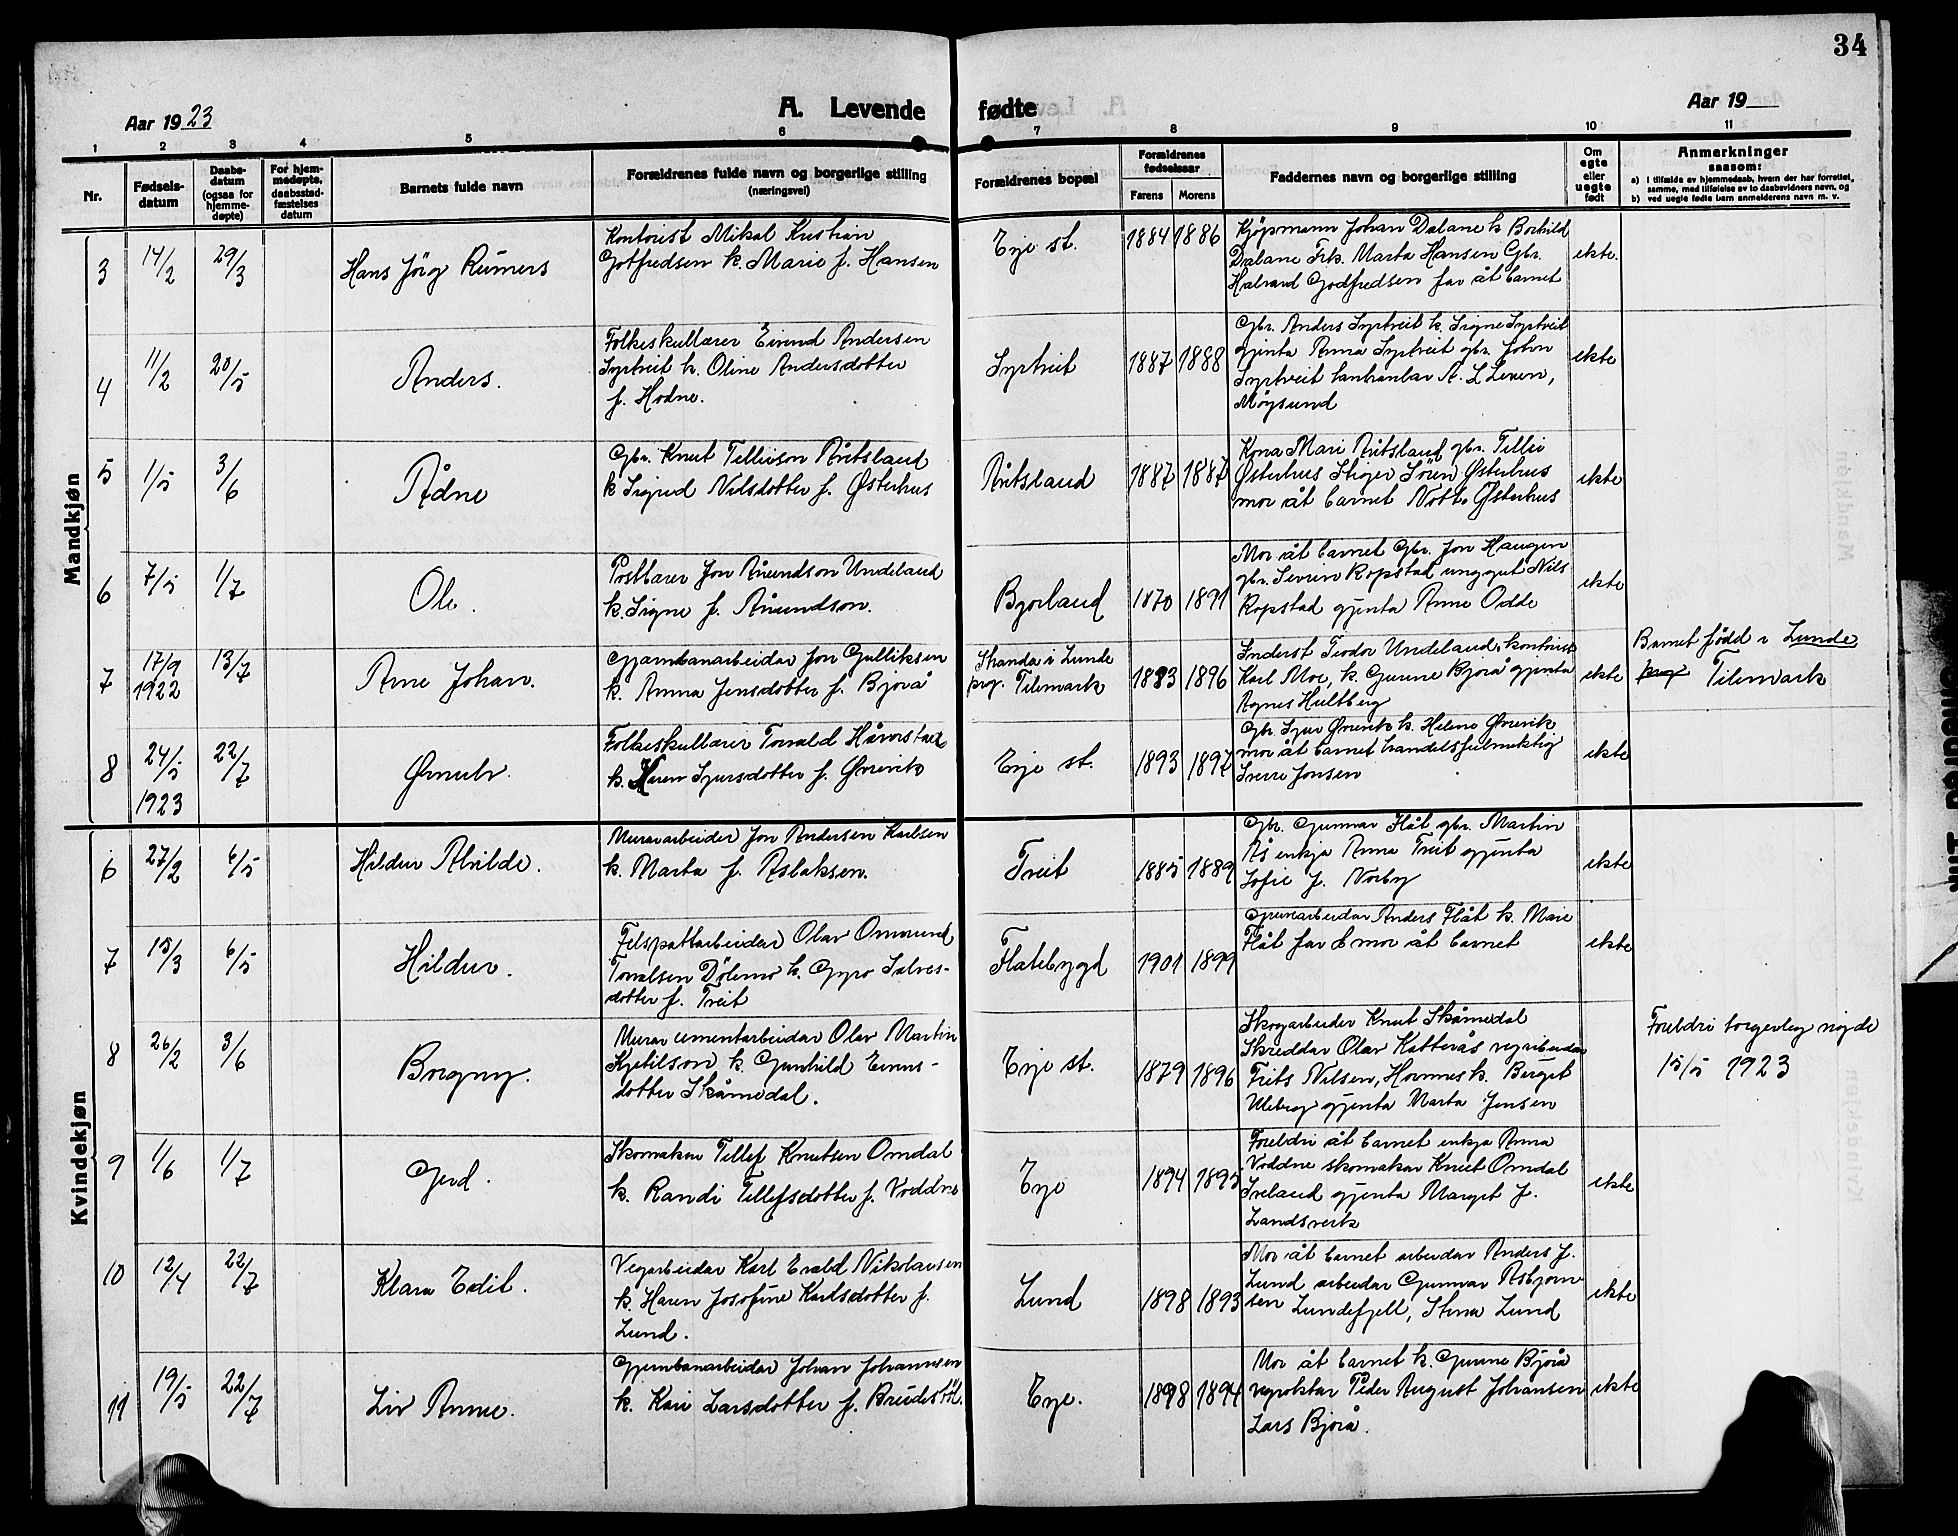 34
Aar 1923
A. Levende fødte
Aar 19
1 2 3 4 5 6 7 8 9 10 11
Nr.
Fødsels-
datum
Daabs-
datum
(ogsaa for
hjemme-
døpte)
For hjem-
medøpte,
daabsstad-
fæstelses
datum
Barnets fulde navn
Forældrenes fulde navn og borgerlige stilling
(næringsvei)
Forældrenes bopæl
Forældrenes
fødselsaar
Farens Morens
Faddernes navn og borgerlige stilling
Om
egte
eller
uegte
født
Anmerkninger
saasom:
a) i tilfælde av hjemmedaab, hvem der har forrettet
samme, med tilføielse av to daabsvidners navn, og
b) ved uegte fødte barn anmelderens navn m. v.
Mandkjøn
3 14/2 29/3 Hans Jörg Rumers
Kontorist Mikal Kristian
Gotfredsen k. Marie f. Hansen
Evje st. 1884 1886
Kjøpmann Johan Dalane k Borhild
Dalane Frk. Marta Hansen Gbr.
Halvard Godfredsen far åt barnet
ekte.
4 11/2 20/5 Anders.
Folkeskullærer Eivind Andersen
Syrtveit k. Oline Andersdotter
f. Hodne.
Syrtveit 1887 1888
Gbr. Anders Syrtveit k. Signe Syrtveit
gjenta Anna Syrtveit gbr. John
Syrtveit
Møysund
ekte
5 1/5 3/6 Ådne
Gbr. Knut Tellevson Åvitsland
k Sigrid Nilsdotter f. Østerhus
Åvitsland 1887 1887
Kona Mari Åvitsland gbr. Tellev
Østerhus Stiger Sören Østerhus
mor åt barnet Østerhus
ekte
6 7/5 1/7 Ole.
Postbærer Jon Åmundson Undeland
k. Signe f. Åmundson.
Bjorland 1870 1891
Mor åt barnet Gbr. Jon Haugen
gbr. Severin Ropstad unggut Nils
Ropstad gjenta Anne Odde
ekte
7 17/9 1922 13/7 Arne Johan.
Gjarnbanarbeidar Jon Gulliksen
k. Anna Jensdotter f. Bjorå
Stranda i Lunde
prg. Tilemark 1883 1896
Inderst Teodor Undeland, kontorist
Karl Moe, k. Gunne Bjorå gjenta
Agnes Hultberg
ekte
Barnet född i Lunde
prg Tilemark
8 24/5 1923 22/7
Folkeskullærer Torvald Håverstad
k. Karen Syversdotter f. Omevik
Evje st. 1893 1897
Gbr. Syver Omevik k. Helene Omevik
mor åt barnet handelsfulmektig
Sverre Jonsen
ekte
Kvindekjøn
6 27/2 6/5 Hildur Alvilde.
Murararbeider Jon Andersen Karlsen
k. Marta f. Aslaksen.
Treit 1885 1889
Gbr. Gunnar Flåt gbr. Martin
Ås enkja Anna Treit gjenta
Sofie J. Norby
ekte
7 15/3 6/5 Hildur.
Felspattarbeidar Olav Omund
Torvalsen Dölemo k. Gyro Salves-
dotter f. Treit
Flatebygd 1901 1899
Gruvearbeidar Anders Flåt k. Marie
Flåt far & mor åt barnet
ekte
8 26/2 3/6 Borgny.
Murar cementarbeidar Olav Martin
Kjetilson k. Gunhild Evens-
dotter Skåmedal.
Evje st. 1879 1896
Skogarbeider Knut Skåmedal
Skreddar Olav Katterås vegarbeidar
Frits Nilsen, Hornnes k. Berget
Uleberg gjenta Marta Jensen
Foreldri borgerleg vigde
15/5 1923
9 1/6 1/7 Gerd.
Skomakar Tellef Knutsen Omdal
k. Randi Tellefsdotter f. Voddne
Evje 1894 1895
Foreldri åt barnet enkja Anna
Voddne skomakar Knut Omdal
Iveland gjenta Margit J.
Landsverk
ekte
10 12/4 22/7 Klara Edit.
Vegarbeidar Karl Evald Nikolaisen
k. Karen Josofine Karlsdotter f.
Lund.
Lund 1898 1893
Mor åt barnet arbeidar Anders J.
Lund arbeidar Gunnar Asbjørn-
sen Lundefjell, Stena Lund
ekte
11 19/5 22/7 Liv Anne.
Gjernbanarbeidar Johan Johannesen
k. Kari Larsdotter f. Breidestöl.
Evje. 1898 1894
Mor åt barnet k. Gunne Bjorå
vegvoktar Peder August Johansen
Lars Bjorå.
ekte